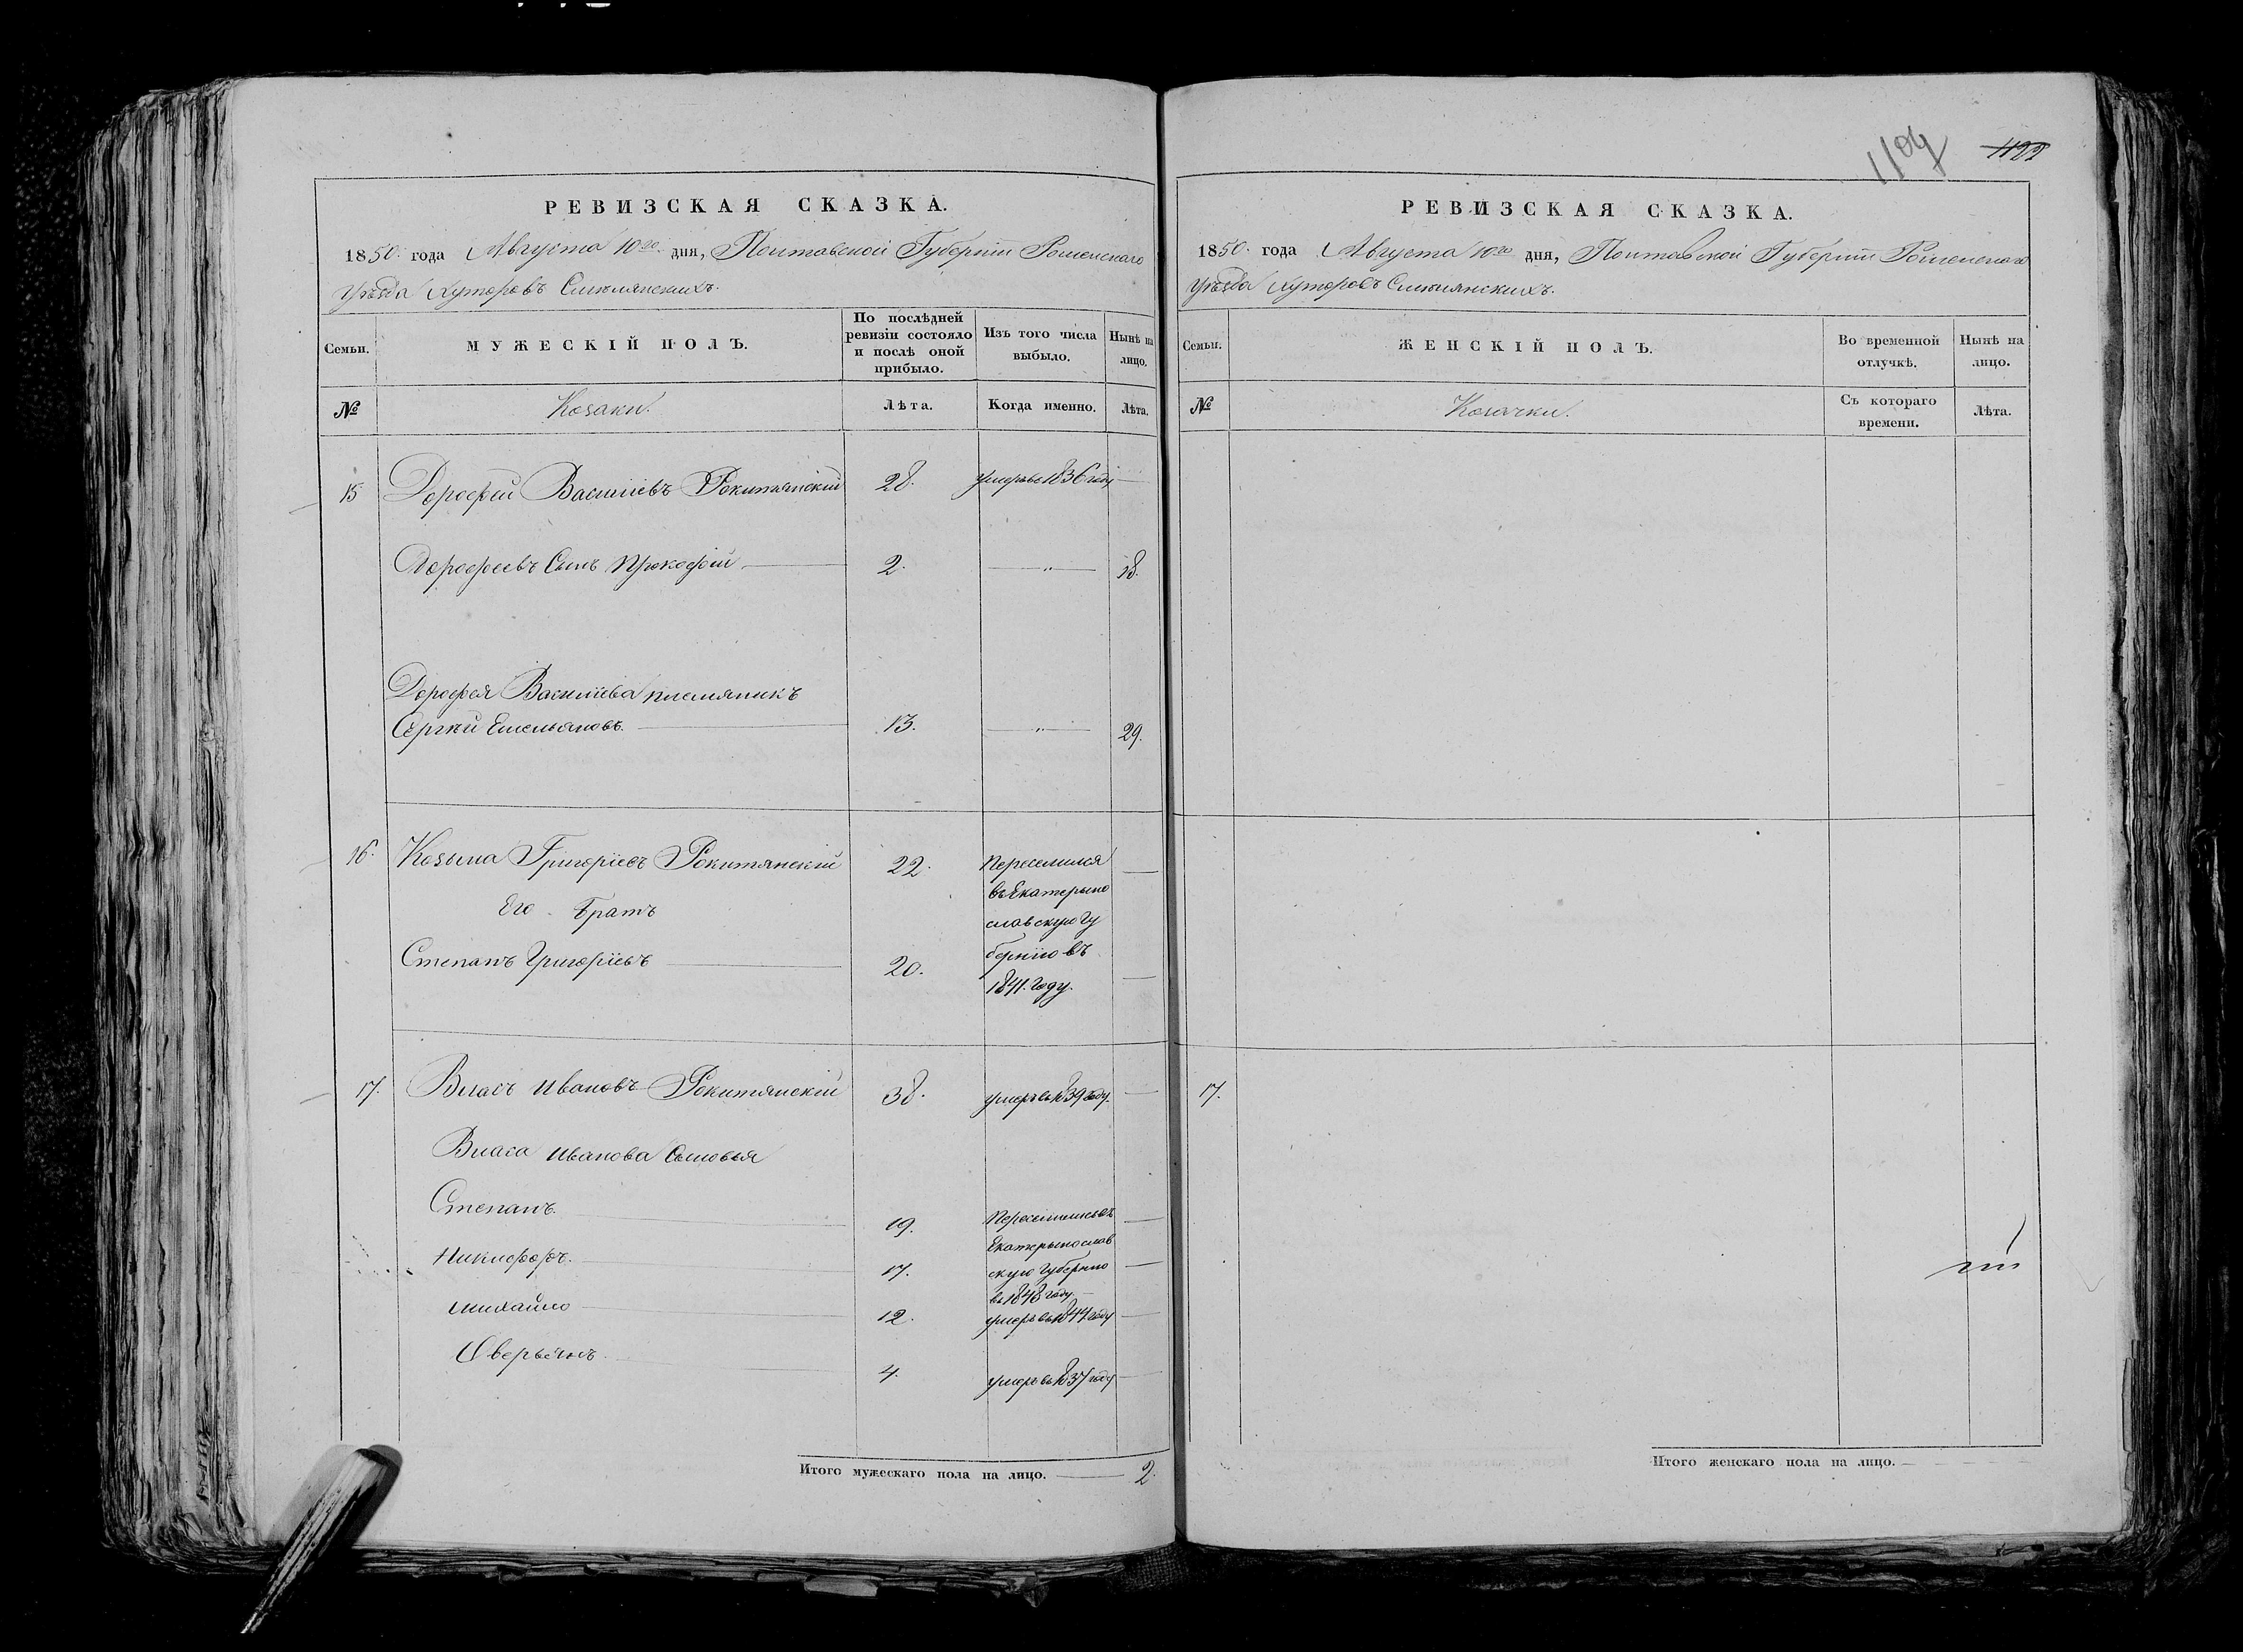 РЕВИЗСКАЯ СКАЗКА.
1850. года Августа 10го дня, Полтавской Губерніи Роменского
Уѣзда Хуторовъ Смѣлянскихъ.
Семьи.
МУЖЕСКІЙ ПОЛЪ.
По послѣдней
ревизіи состояло
и послѣ оной
прибыло.
Изъ того числа
выбыло.
Нынѣ на
лицо.
№
Козаки.
Лѣта.
Когда именно.
Лѣта.
15 Дорофей Василіевъ Рокитянскій 28. умеръ въ 1836 году —
Дорофеевъ Сынъ Прокофій 2. — " — 18.
Дорофея Василіева племяникъ
Сергѣй Емельяновъ. 13. — " — 29.
16. Козьма Григоріевъ Рокитянскій 22. Переселился —
въ Екатерино
Его Братъ
славскую Гу
Степанъ Григоріевъ 20. бернію въ —
1841. году.
17. Власъ Ивановъ Рокитянскій 38. умеръ въ 1839 году. —
Власа Иванова Сыновья
Степанъ. 19. Переселились въ —
Екатеринослав
Никифоръ. 17. скую Губернію —
въ 1848 году
Михайло 12. умеръ въ 1844 году —
Аверьянъ. 4. умеръ въ 1837 году —
Итого мужескаго пола на лицо. — 2.
1109
1122
РЕВИЗСКАЯ СКАЗКА.
1850. года Августа 10го дня, Полтавской Губерніи Роменского
Уѣзда Хуторовъ Смѣлянскихъ.
Семьи.
ЖЕНСКІЙ ПОЛЪ.
Во временной
отлучкѣ.
Нынѣ на
лицо.
№
Козачки.
Съ котораго
времени.
Лѣта.
17.
Итого женскаго пола на лицо. —